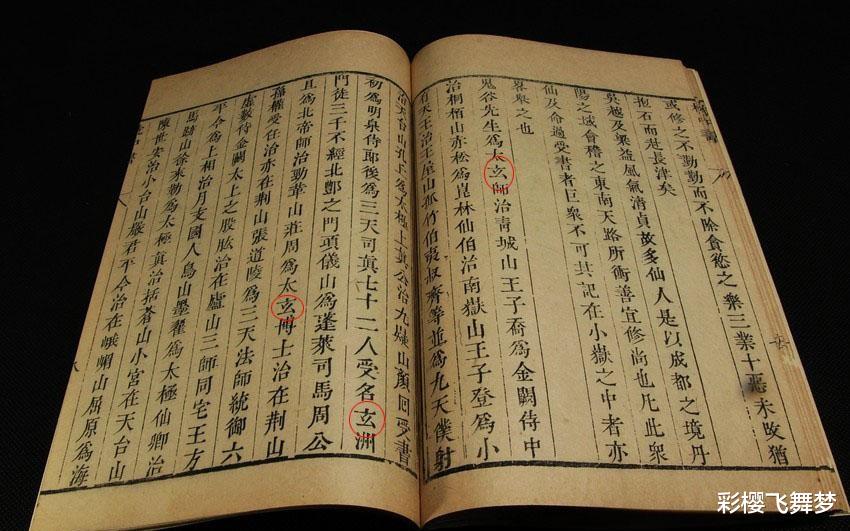 或修之不勤勤而不除貪慾之三業十惡未攺猶
抱石而赴長津矣
吳越及梁益風氣清貞故多仙人是以成都之境丹
陽之域會稽之東南天路所衝善宜修尚也凡此衆
仙及命過受書者巨衆不可具記在小嶽之中者亦
畧舉之也
鬼谷先生爲太玄師治青城山王子喬爲金闕侍中
治桐栢山赤松爲崑林仙伯治南嶽山王子登爲小
有天王治王屋山孤竹伯夷叔齊等並爲九天僕射
治天台山孔丘爲太極上眞公治九嶷山顔回受書
初爲明泉侍郎後爲三天司眞七十二人受名玄洲
門徒三千不經北酆之門項儀山爲蓬萊司馬周公
且爲北帝師治勁革山莊周爲太玄博士治在荊山
孫權受任治亦在荊山張道陵爲三天法師統御六
虛數侍金闕太上之股肱治在廬山三師同宅王方
平今爲上相治月支國人鳥山墨翟爲太極仙卿治
馬跡山徐來勒爲太極眞治括蒼山小宮在天台山
陳世安治小台山嚴君平今治在峨嵋山屈原爲海
彩樱飞舞梦